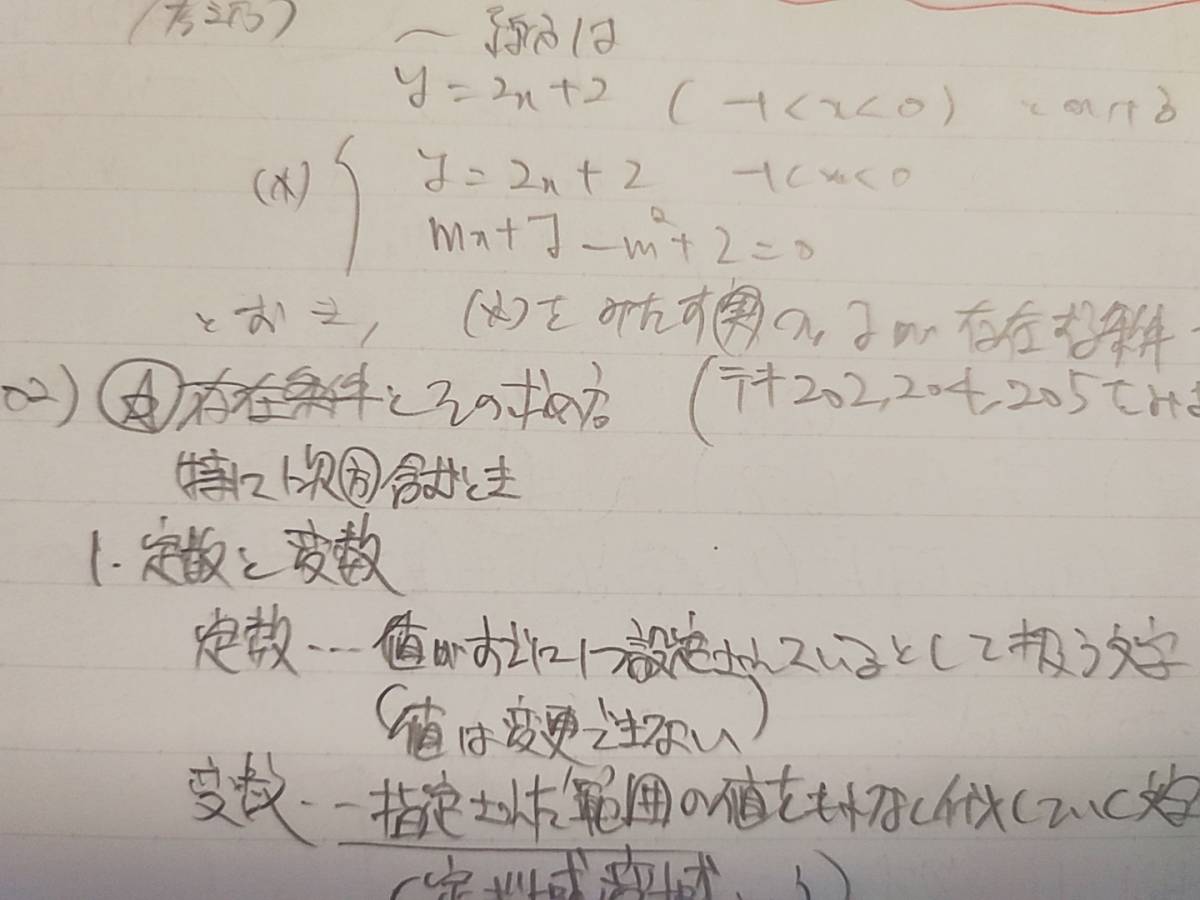 (考え方)
y = 2x + 2 (-1 < x < 0)
(*) { y = 2x + 2 -1 < x < 0
mx + y - m² + 2 = 0
とおき, (*)をみたす実x, yの存在する条件
02) A 存在条件とその求め方 (テキ202, 204, 205でみ
特に1次方含むとき
1. 定数と変数
定数… 値がすでに1つ設定されているとして扱う文字
(値は変更できない)
変数… 指定された範囲の値をもれなく代入していく文字